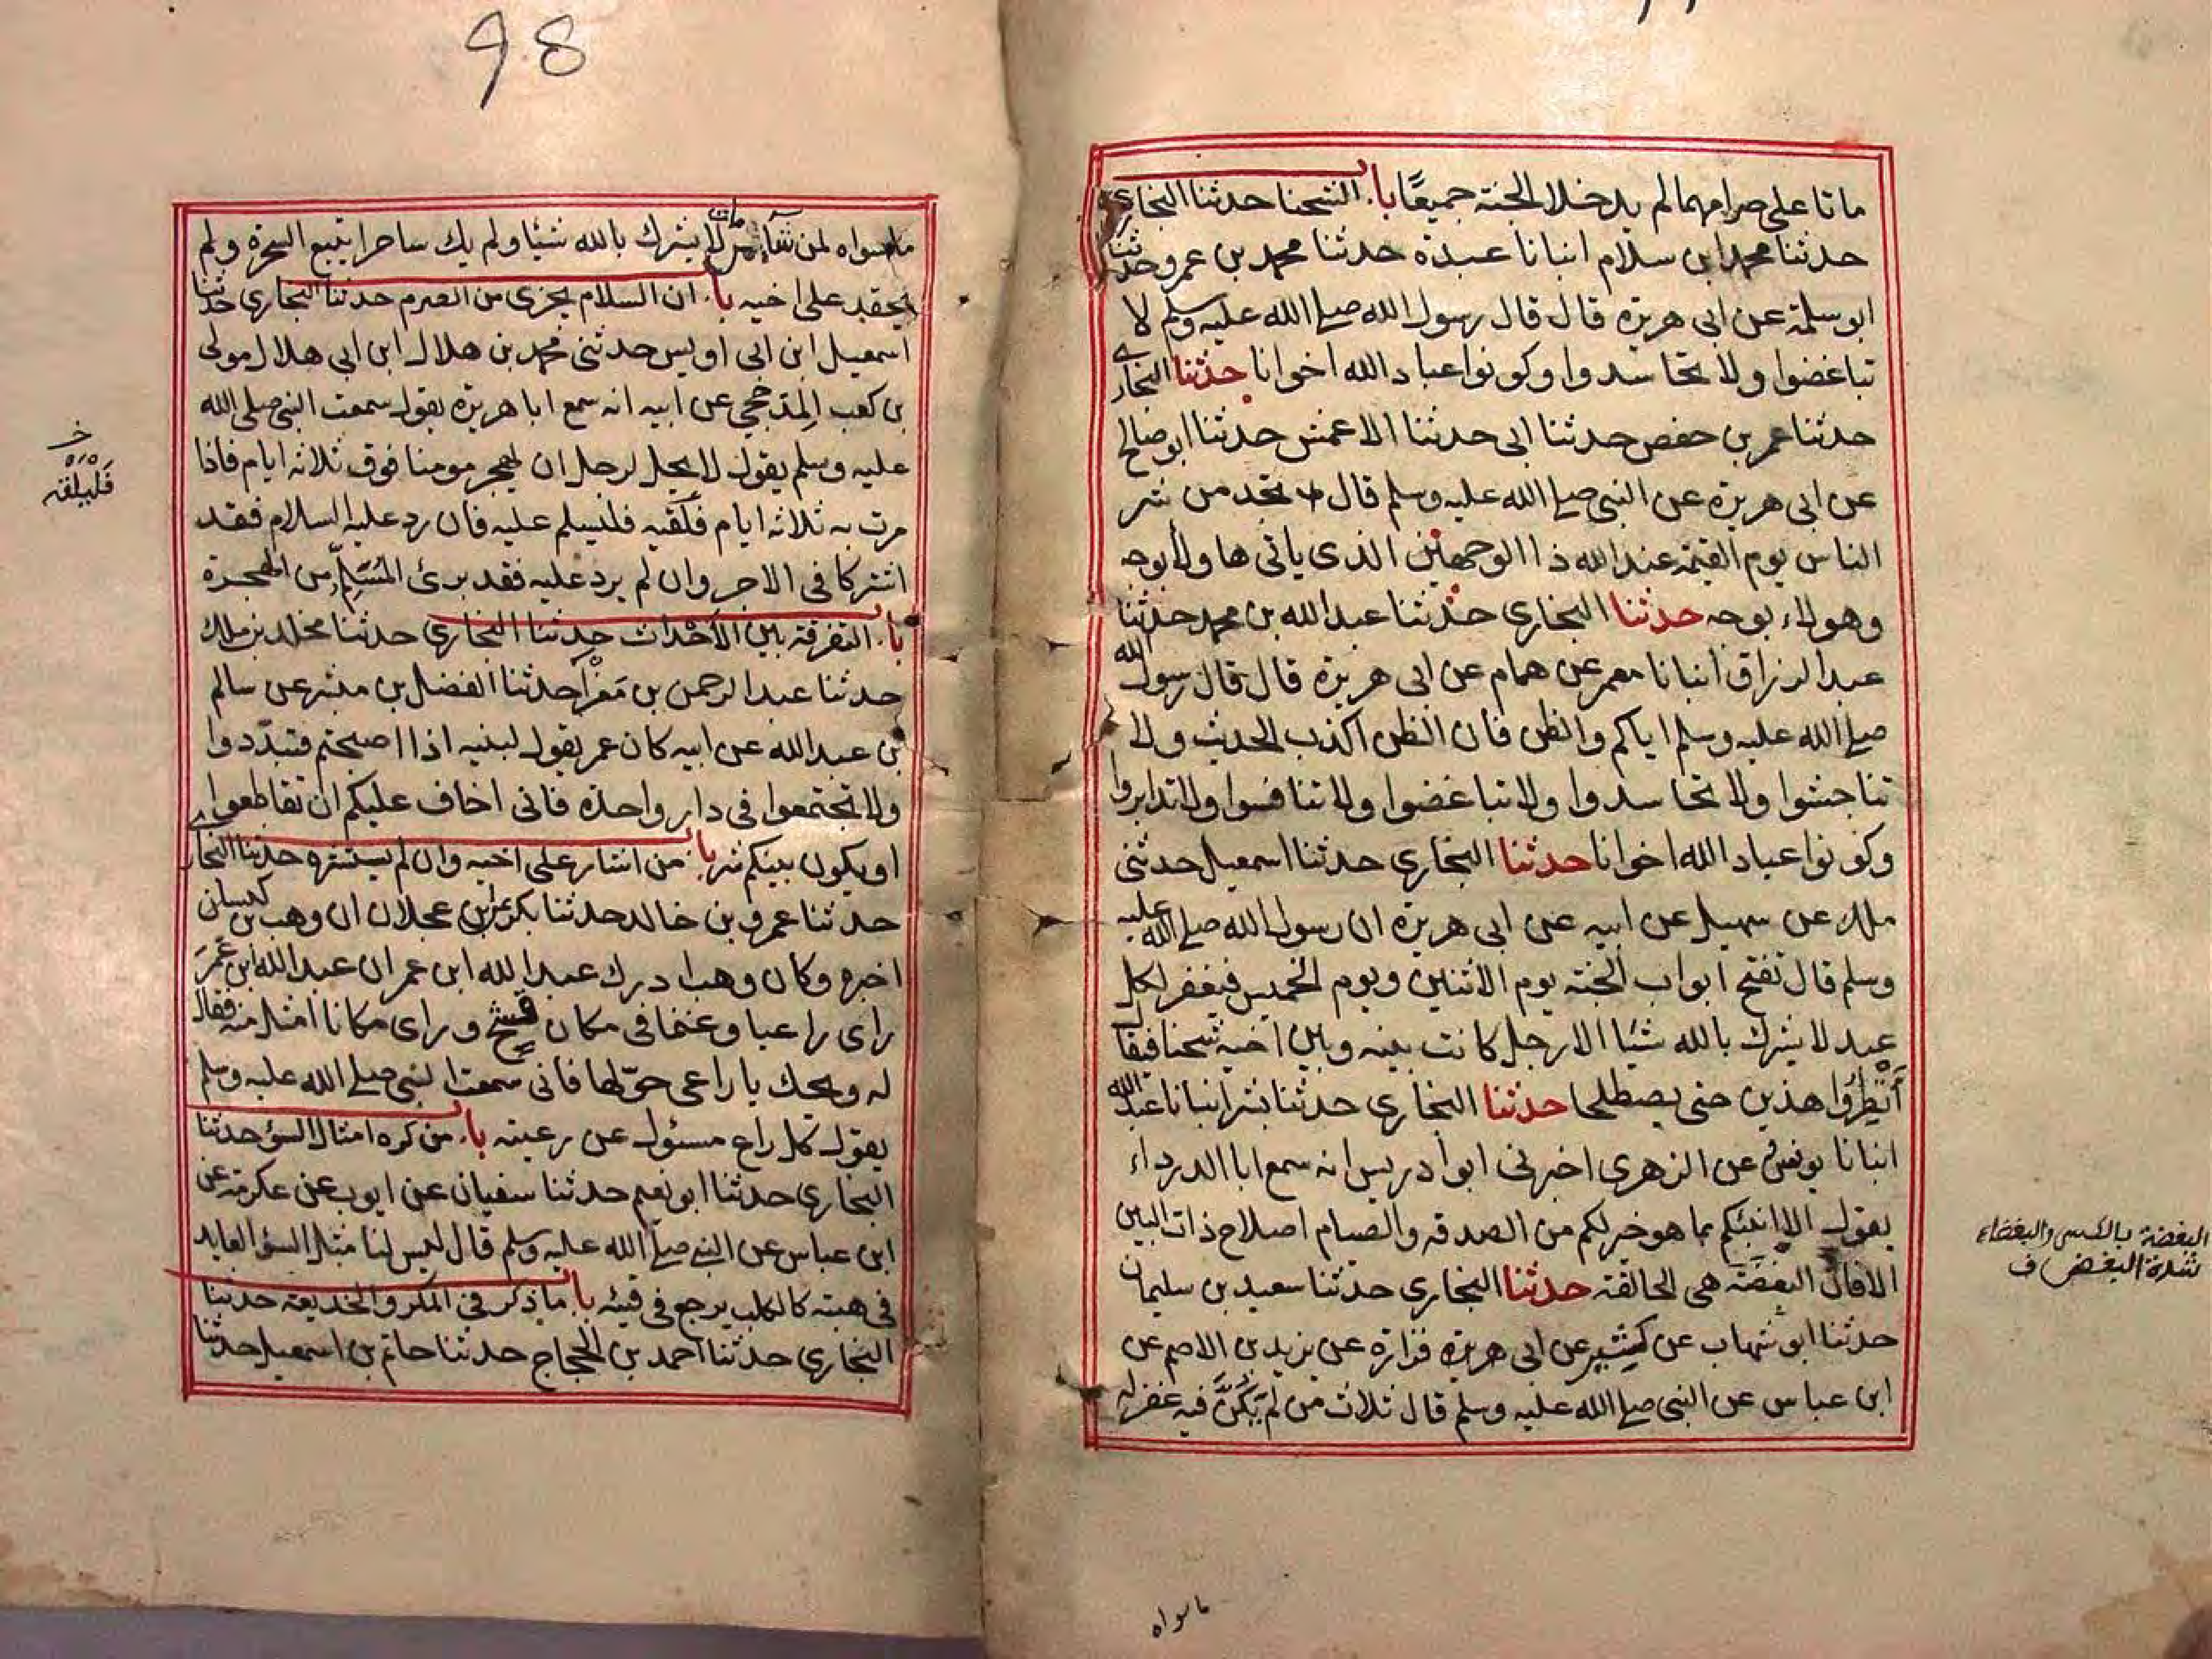 ماتا على صرامهما لم يدخلا الجنة جميعًا باب الشحنا حدثنا البخاري
حدثنا محمد ابن سلام انبانا عبدة حدثنا محمد بن عمرو حدثنا
ابو سلمة عن ابى هريرة قال قال رسول الله صلى الله عليه وسلم لا
تباغضوا ولا تحاسدوا وكونوا عباد الله اخوانا حدثنا البخاري
حدثنا عمر بن حفص حدثنا ابى حدثنا الاعمش حدثنا ابو صالح
عن ابى هريرة عن النبى صلى الله عليه وسلم قال تجد من شر
الناس يوم القيمة عند الله ذا الوجهين الذى ياتى هاولاء بوجه
وهولاء بوجه حدثنا البخاري حدثنا عبد الله بن محمد حدثنا
عبد الرزاق انبانا معمر عن همام عن ابى هريرة قال قال رسول الله
صلى الله عليه وسلم اياكم والظن فان الظن اكذب الحديث ولا
تناجشوا ولا تحاسدوا ولا تباغضوا ولا تنافسوا ولا تدابروا
وكونوا عباد الله اخوانا حدثنا البخاري حدثنا اسمعيل حدثنى
ملك عن سهيل عن ابيه عن ابى هريرة ان رسول الله صلى الله عليه
وسلم قال تفتح ابواب الجنة يوم الاثنين ويوم الخميس فيغفر لكل
عبد لا يشرك بالله شيا الا رجل كانت بينه وبين اخيه شحنا فيقال
أنْظِرُوا هذين حتى يصطلحا حدثنا البخاري حدثنا بشر انبانا عبد الله
انبانا يونس عن الزهرى اخبرنى ابو ادريس انه سمع ابا الدرداء
يقول الا انبئكم بما هو خير لكم من الصدقه والصيام اصلاح ذات البين
الا فان البغضة هى الحالقة حدثنا البخاري حدثنا سعيد بن سليمان
حدثنا ابو شهاب عن كثير عن ابى هريرة فزارة عن يزيد بن الاصم عن
ابن عباس عن النبى صلى الله عليه وسلم قال ثلاث من لم يكنَّ فيه غفر له
البغضة بالكسر والبغضاء
شدة البغض ف
ما سواه
98
ما سواه لمن شاء من مات لا يشرك بالله شيئا ولم يك ساحرا يتبع السحرة ولم
يحقد على اخيه باب ان السلام يجزى من الصرم حدثنا البخارى حدثنا
اسمعيل ابن ابى اويس حدثنى محمد بن هلال ابن ابى هلال مولى
بن كعب المذحجى عن ابيه انه سمع ابا هريرة يقول سمعت النبى صلى الله
عليه وسلم يقول لا يحل لرجل ان يهجر مومنا فوق ثلاثة ايام فاذا
مرت به ثلاثة ايام فلقيه فليسلم عليه فان رد عليه السلام فقد
اشتركا فى الاجر وان لم يرد عليه فقد برئ المُسَلِّم من الهجرة
باب التفرقة بين الأحْداث حدثنا البخاري حدثنا مخلد بن ملك
حدثنا عبد الرحمن بن مَغْرَا حدثنا الفضل بن مبشر عن سالم
بن عبد الله عن ابيه كان عمر يقول لبنيه اذا اصبحتم فتبدّدوا
ولا تجتمعوا فى دار واحدة فانى اخاف عليكم ان تقاطعوا
او يكون بينكم شر باب من اشار على اخيه وان لم يستشره حدثنا البخارى
حدثنا عمرو بن خالد حدثنا بكر عن ابن عجلان ان وهب بن كيسان
اخبره وكان وهب ادرك عبد الله ابن عمر ان عبد الله ابن عُمَرَ
راى راعيا وغنما فى مكان قشح وراى مكانا امثل منه فقال
له ويحك يا راعى حوّلها فانى سمعت النبى صلى الله عليه وسلم
يقول كل راع مسئول عن رعيته باب من كره امثال السؤ حدثنا
البخاري حدثنا ابو نعيم حدثنا سفيان عن ايوب عن عكرمة عن
ابن عباس عن النبى صلى الله عليه وسلم قال ليس لنا مثل السؤ العايد
فى هبته كالكلب يرجع فى قيئه باب ما ذكر فى المكر والخديعة حدثنا
البخاري حدثنا احمد بن الحجاج حدثنا حاتم بن اسمعيل حدثنا
خ
فَلْيَلْقَهُ